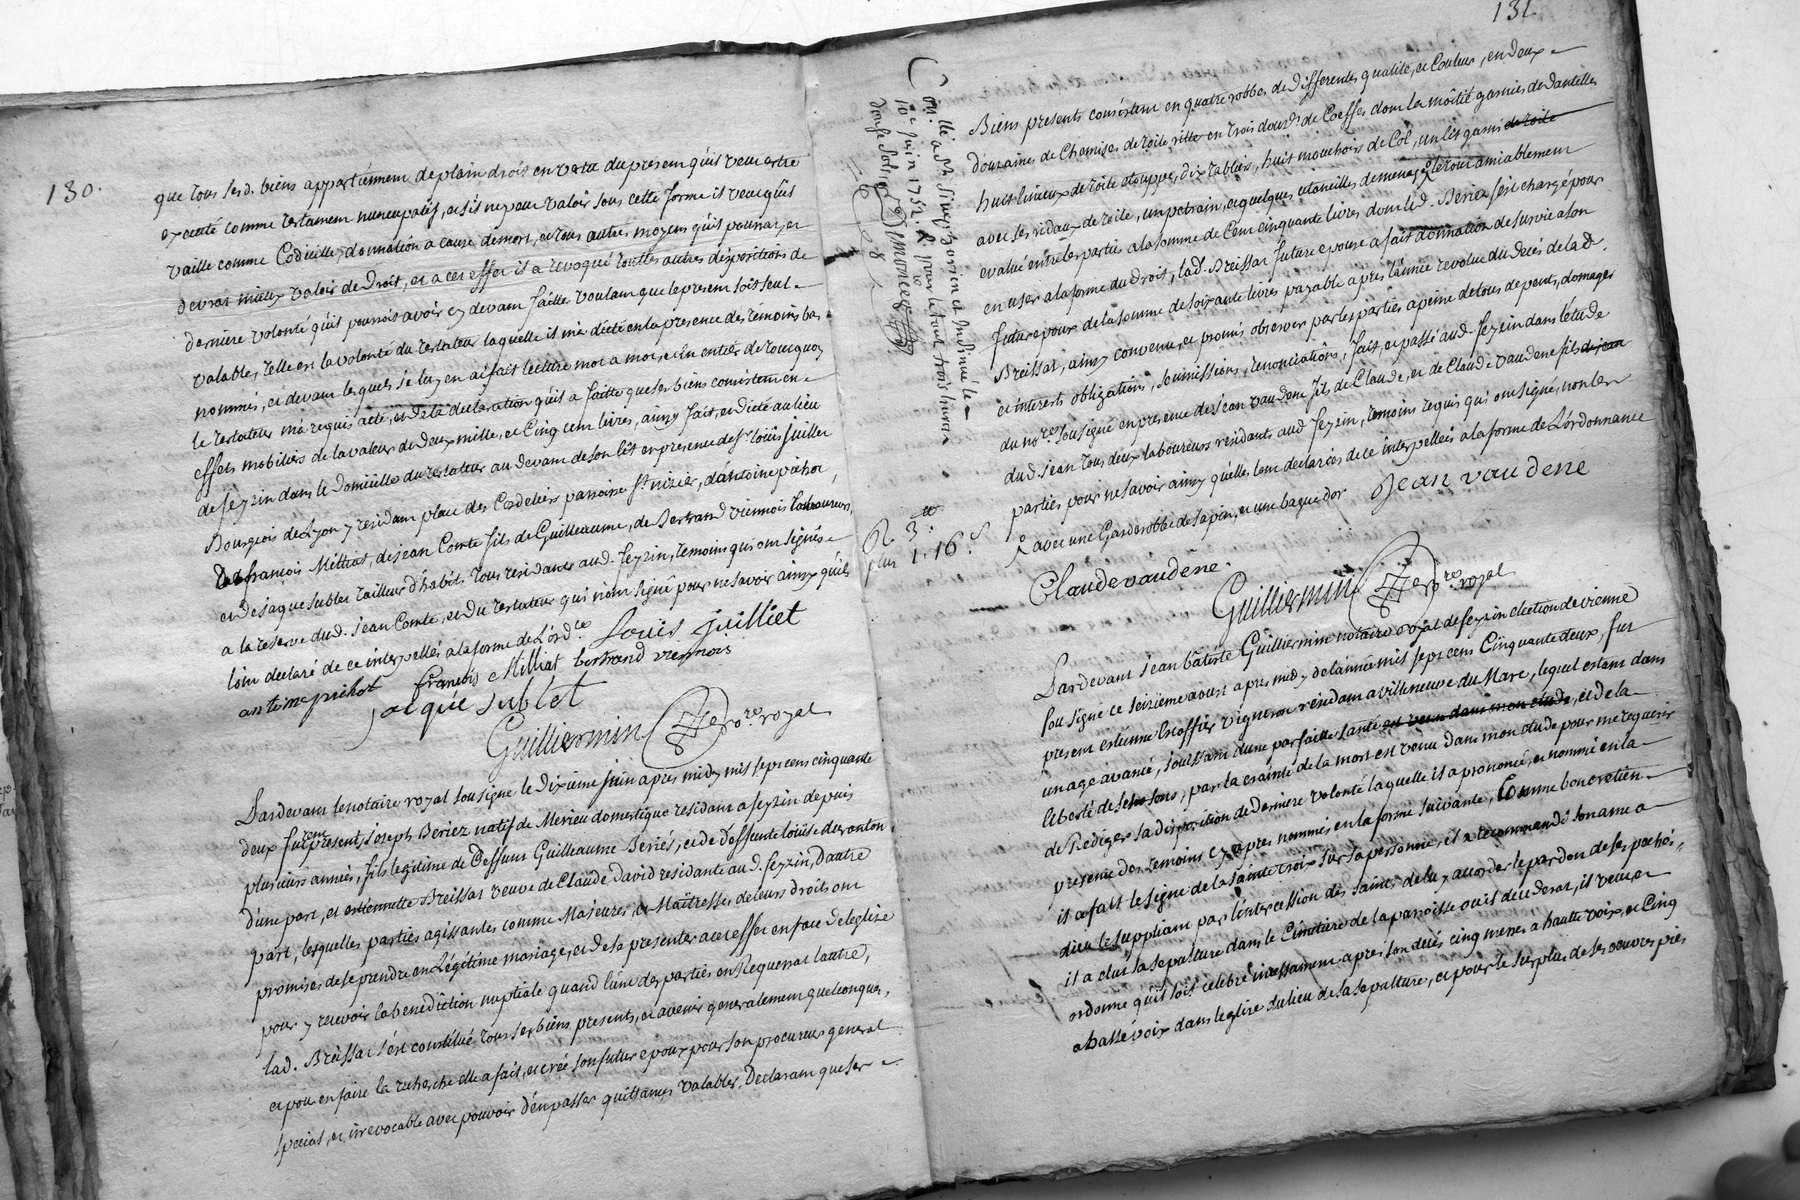 130.
que tous sesd. biens appartiennent de plain droit en vertu du present qu'il veut estre
executé comme testament nuncupatif, et s'il ne peut valoir sous cette forme il veut qu'il
vaille comme Codicille, donnation a cause de mort, et tous autres moyens qu'il pourrat, et
devrat mieux valoir de Droit, et a cet effet il a revoqué touttes autres dispositions de
derniere volonté qu'il pourroit avoir cy devant faittes voulant que le present soit seul
valable, telle est la volonté du testateur laquelle il m'a dicté en la presence des temoins bas
nommés, et devant lesquels je luy en ai fait lecture mot a mot, et en entier de tout quoy
le testateur m'a requis acte, et de la declaration qu'il a faitte que ses biens consistent en
effets mobiliers de la valeur de deux mille, et Cinq cent livres, ainsy fait, et dicté au lieu
de feyzin dans le Domicille du testateur au devant de son lit en presence de sr. loüis juillet
Bourgeois de Lyon y residant place des Cordeliers paroisse st nizier, d'antoine pichot,
de francois Milliat, de jean Comte fils de Guilleaume, de Bertrand viennois laboureurs,
et de jaque sublet tailleur d'habits tous residants aud. feyzin, temoins qui ont signés
a la reserve dud. jean Comte, et du testateur qui n'ont signé pour ne savoir ainsy qu'ils
l'ont declaré de ce interpellés a la forme de l'ord.ce Louis juilliet
antoine pichot françois Milliat bertrand viennois
jacque sublet
Guilliermin no.re royal
Pardevant le notaire royal soussigné le dixieme juin apres midy mil sept cent cinquante
deux furent present, joseph Beriez natif de Merieu domestique residant a feyzin depuis
plusieurs années, fils legitime de deffunt Guilleaume Beriés, et de deffunte loüise duranton
d'une part, et estiennette Breissat veuve de Claude David residante aud. feyzin, d'autre
part, lesquelles parties agissantes comme Majeures, et Maitresses de leurs droits ont
promis de se prendre en Légitime mariage, et de se presenter a cet effet en face de leglise
pour y recevoir la benediction nuptiale quand l'une des parties en Requerrat l'autre,
lad. Breissat s'est constitué tous ses biens presents, et avenir generalement quelconques,
et pour en faire la recherche elle a fait, et créé son futur epoux pour son procureur general
special, et irrevocable avec pouvoir d'en passer quittances valables, Declarant que ses
Con.llé a st Simphorien et Insinué le
10e juin 1752. R. pour le tout trois livres
douze sols
R. 3.tt
plus 1. 16.s
131
Biens presents consistent en quatre robbes de differentes qualité, et Couleur, en deux
douzaines de Chemises de toile ritte en trois douz.s de Coeffes dont la moitié garnies de dantelles
huit linieux de toile etouppe, dix tabliers, huit mouchoirs de Col, un lit garni de toile
avec ses ridaux de toile, un petrain, et quelques utancilles de menage, le tout amiablement
evalué entre les parties a la somme de Cent cinquante livres dont led. Beriez s'est chargé pour
en user a la forme du droit, lad. Breissat future epouse a fait donnation de survie a son
futur epoux de la somme de soixante livres payable apres l'année revolue du decés de lad.
Breissat, ainsy convenu, et promis observer par les parties a peine de tous depents, domages
et interests obligations, soumissions, renonciations, fait, et passé aud. feyzin dans l'étude
du no.re soussigné en presence de jean vaudene fils de Claude, et de Claude vaudene fils de jean
dud. jean tous deux laboureurs residants aud. feyzin, temoins requis qui ont signé, non les
parties pour ne savoir ainsy qu'elles l'ont declarées de ce interpellées a la forme de L'ordonnance
avec une Garderobbe de sapin, et une bague d'or Jean vaudene
Claude vaudene.
Guilliermin no.re royal
Pardevant jean bâtiste Guilliermin notaire royal de feyzin election de vienne
soussigné ce seizieme aoust apres midy de l'année mil sept cent Cinquante deux, fut
present estienne Escoffier vigneron residant a villeneuve du Marc, lequel estant dans
un age avancé, jouissant d'une parfaitte santé est venu dans mon etude, et de la
liberté de ses sens, par la crainte de la mort est venu dans mon etude pour me requerir
de Rediger sa disposition de derniere volonté laquelle il a prononcé, et nommé en la
presence des temoins cy apres nommés en la forme suivante, Comme bon cretien
il a fait le signe de la sainte croix sur sa personne, et a recommandé son ame a
dieu le suppliant par l'intercession des saints de luy accorder le pardon de ses pechés,
il a elut sa sepulture dans le Cimitiere de la paroisse ou il decederat, il veut et
ordonne qu'il soit celebré incessament apres son decés, cinq messes a hautte voix, et Cinq
a basse voix dans leglise du lieu de sa sepulture, et pour le surplus de ses oeuvres pies